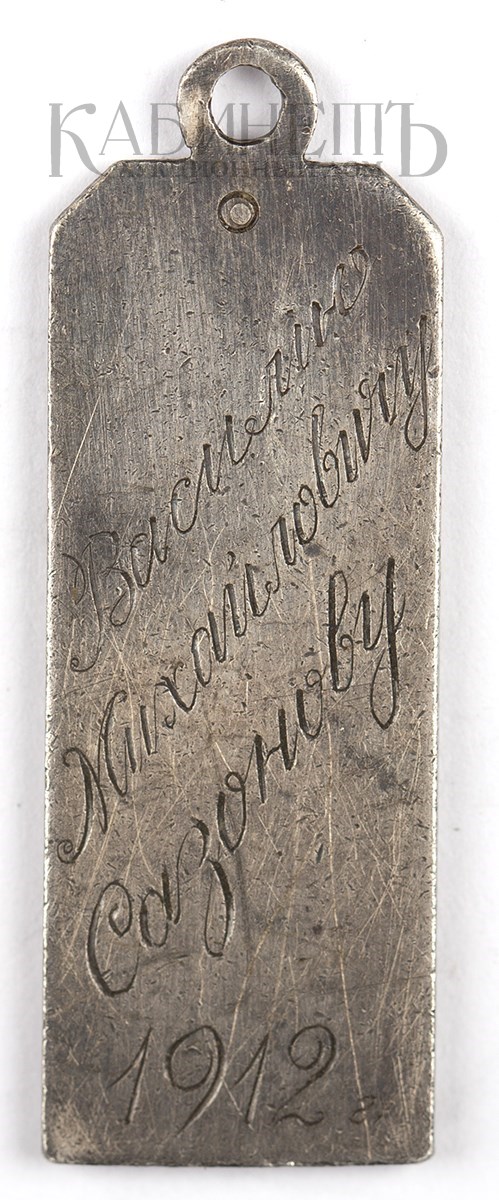 КАБИНЕТЪ
АУКЦИОННЫЙ ДОМ
Василию
Михайловичу
Сазонову
1912 г.